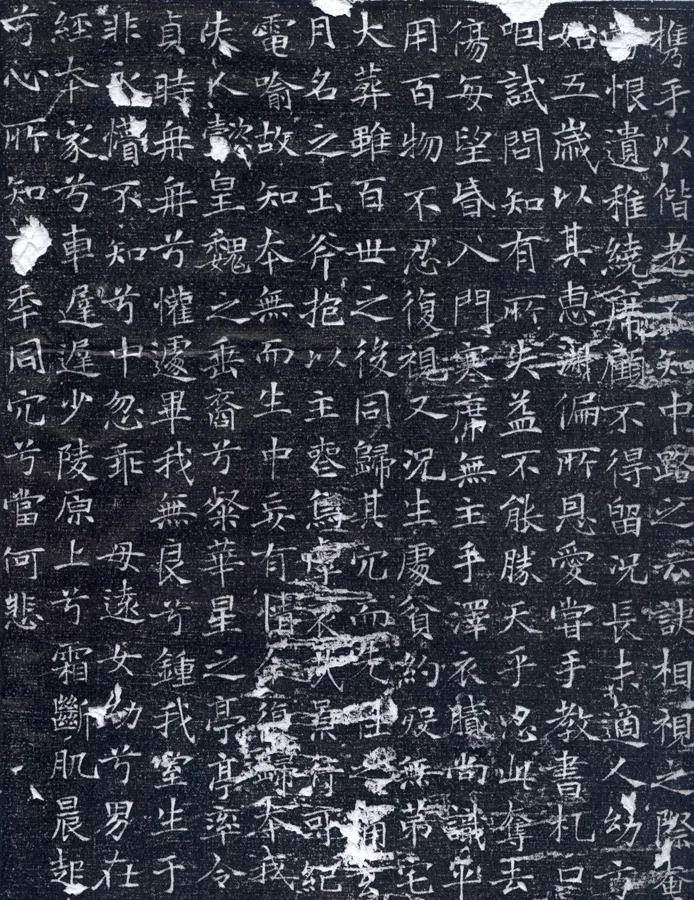 携手以偕老不知中路之云訣相視之際奄
恨遺稚繞席顧不得留況長未適人幼方
始五歲以其惠淑偏所恩愛嘗手教書札口
咽試問知有所失益不能勝天乎忍此奪去
傷每望昏入門寒席無主手澤衣膩尚識平
用百物不忍復視又況生處貧約歿無第宅
大葬雖百世之後同歸其穴而先往之痛玄
月名之玉斧抱以主喪烏虖哀哉景行可紀
電喻故知本無而生中妄有情今復歸本我
夫人懿皇魏之垂裔兮粲華星之亭亭率令
貞時冉冉兮懽遽畢我無良兮鍾我室生于
非永懵不知兮中忽乖母遠女幼兮男在
經本家兮車遲遲少陵原上兮霜斷肌晨起
兮心所知百年同穴兮當何悲